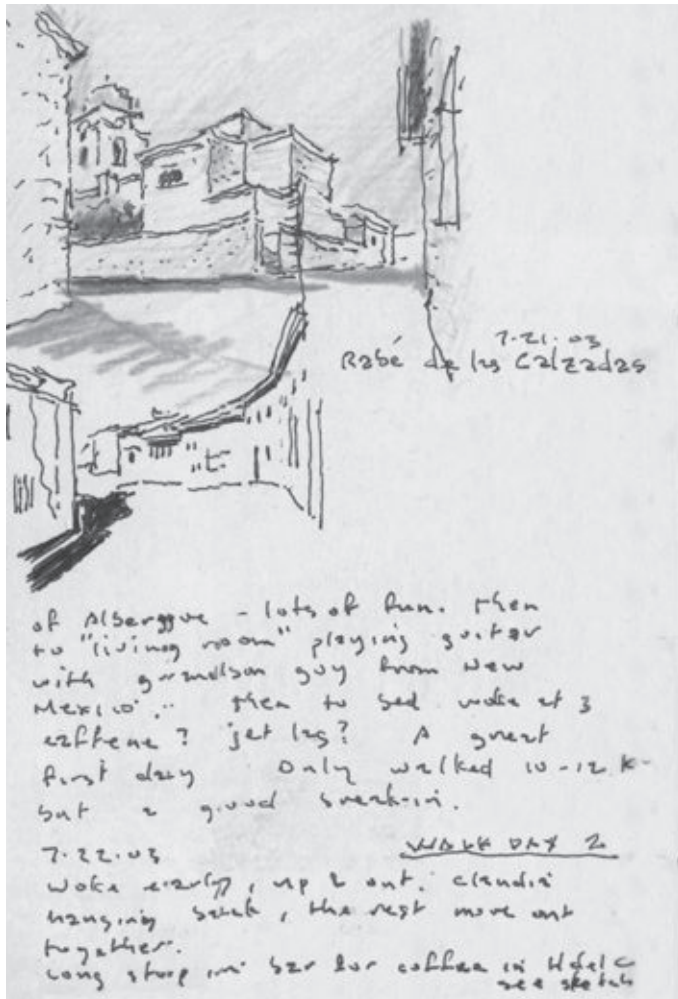 7.21.03
Rabé de las Calzadas
of Albergque - lots of fun. Then
to "living room" playing guitar
with grandson guy from New
Mexico. Then to bed woke at 3
caffeine? jet lag? A great
first day Only walked 10-12 K
but a good break-in.
7.22.03 WALK DAY 2
Woke early, up & out. Claudia
hanging back, the rest move out
together.
Long stop in bar for coffee in
see sketch